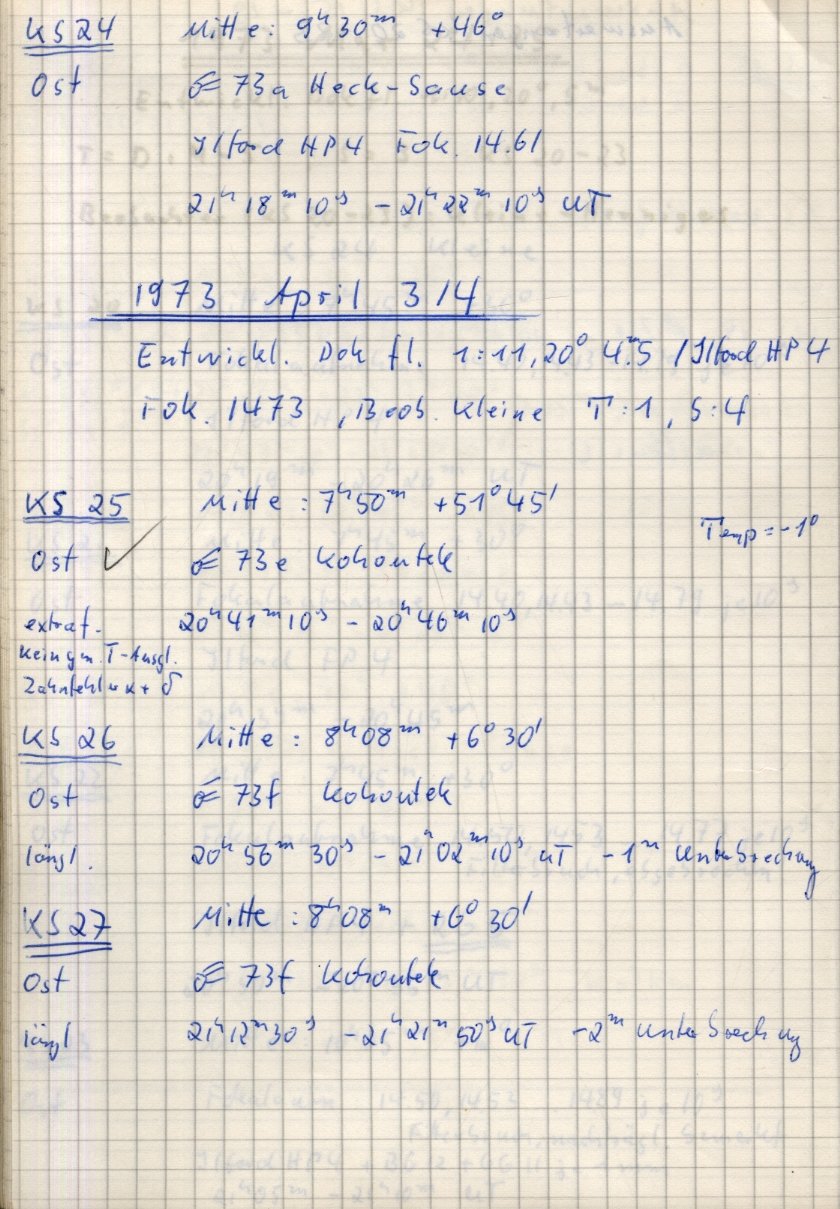 KS 24 Mitte: 9ʰ30ᵐ +46°
Ost ☄ 73a Heck-Sause
Ilford HP4 Fok. 14.61
21ʰ 18ᵐ 10ˢ – 21ʰ 22ᵐ 10ˢ UT
1973 April 3/4
Entwickl. Dok fl. 1:11, 20° 4ᵐ.5 / Ilford HP4
Fok. 1473, Beob. Kleine T:1, S:4
KS 25 Mitte: 7ʰ50ᵐ +51°45'
Temp = -1°
Ost ✓ ☄ 73e Kohoutek
extraf. 20ʰ41ᵐ10ˢ – 20ʰ46ᵐ10ˢ
kein T-Ausgl.
Zahnfehler α + δ
KS 26 Mitte: 8ʰ08ᵐ +6°30'
Ost ☄ 73f Kohoutek
längl. 20ʰ56ᵐ30ˢ – 21ʰ02ᵐ10ˢ UT – 1ᵐ Unterbrechung
KS 27 Mitte: 8ʰ08ᵐ +6°30'
Ost ☄ 73f Kohoutek
längl 21ʰ12ᵐ30ˢ – 21ʰ21ᵐ50ˢ UT – 2ᵐ Unterbrechung